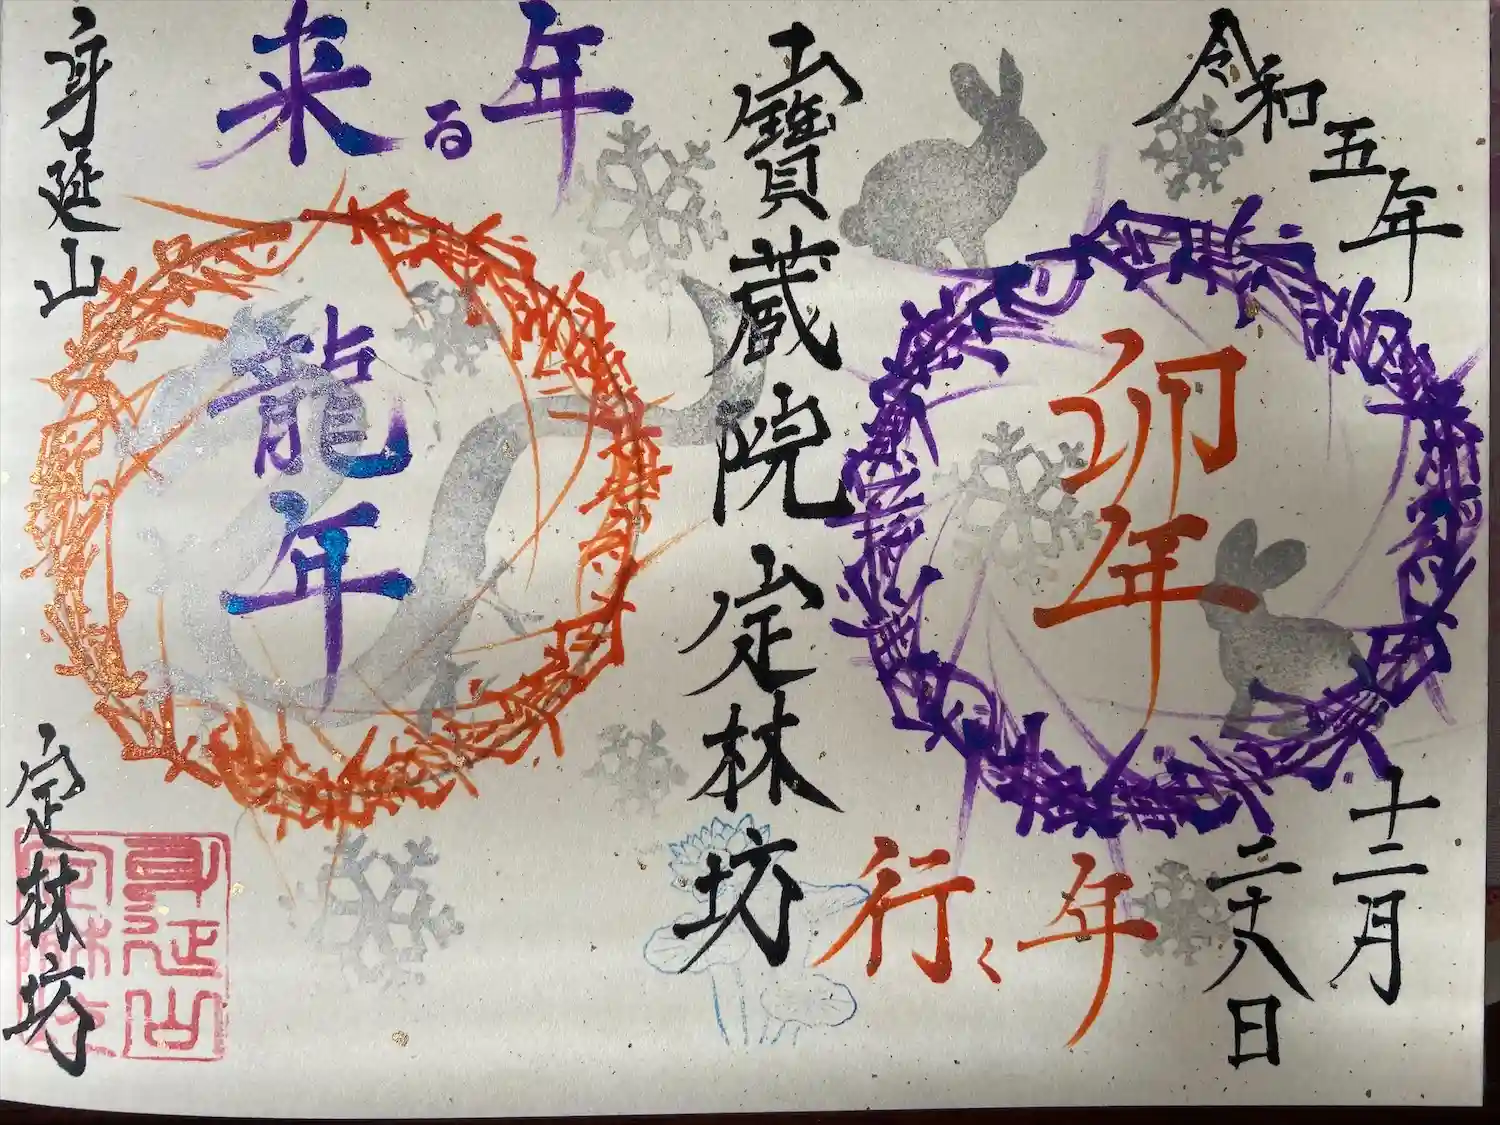 令和五年
十二月
二十八日
卯年
行く年
寶蔵院定林坊
来る年
龍年
身延山
定林坊
身延山
定林坊